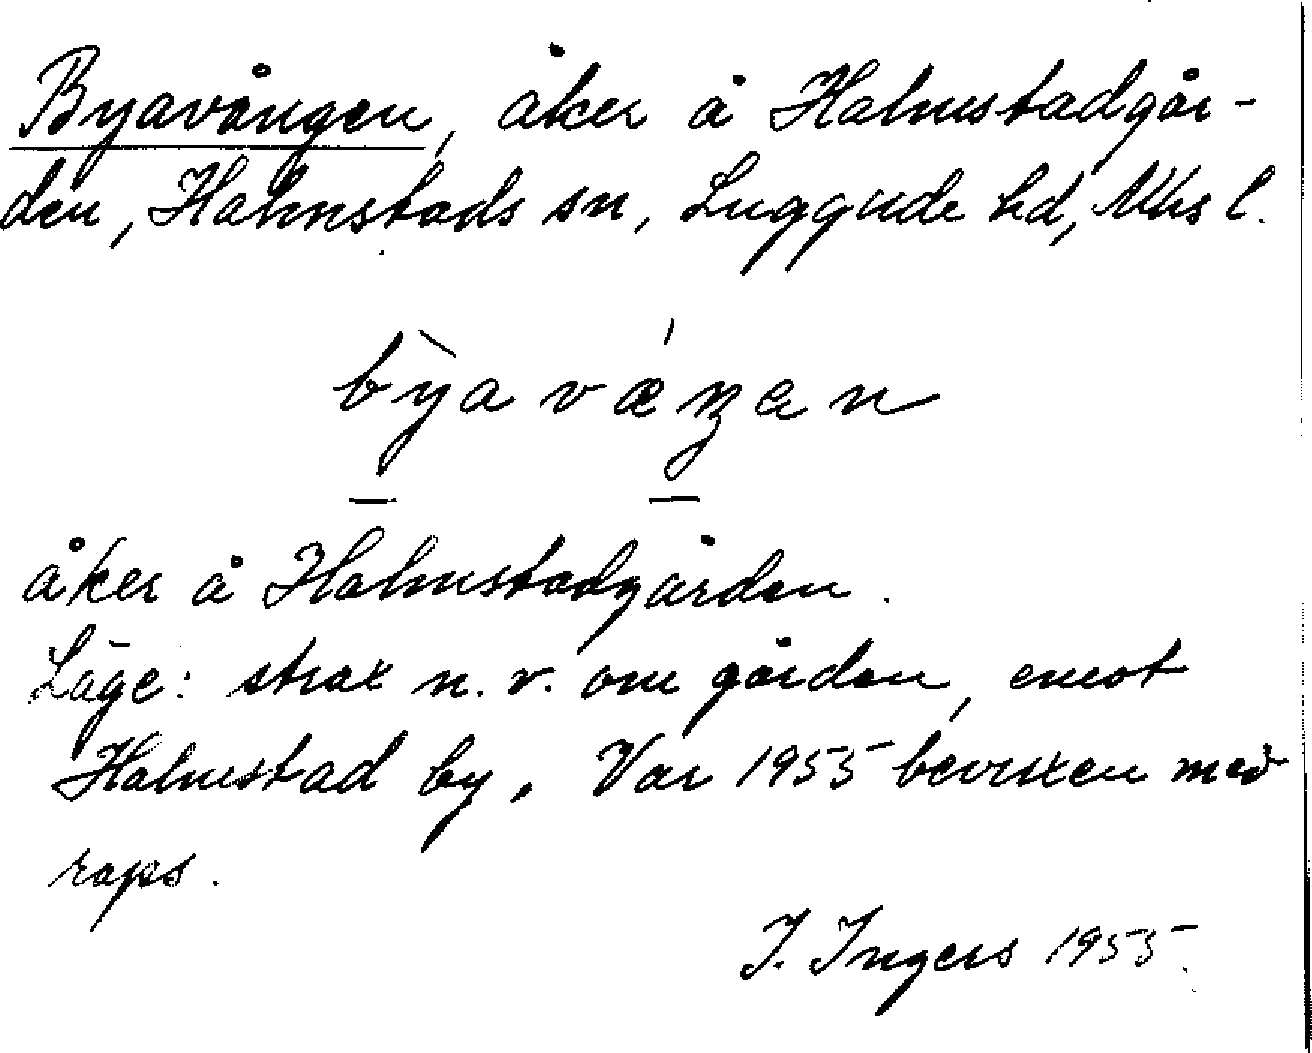 Byavången, åker å Halmstadgår-
den, Halmstads sn, Luggude hd, Mhs l.
bỳa vǽŋan
åker å Halmstadgården.
Läge: strax n. v. om gården, emot
Halmstad by. Var 1955 bevuxen med
raps.
I. Ingers 1955.